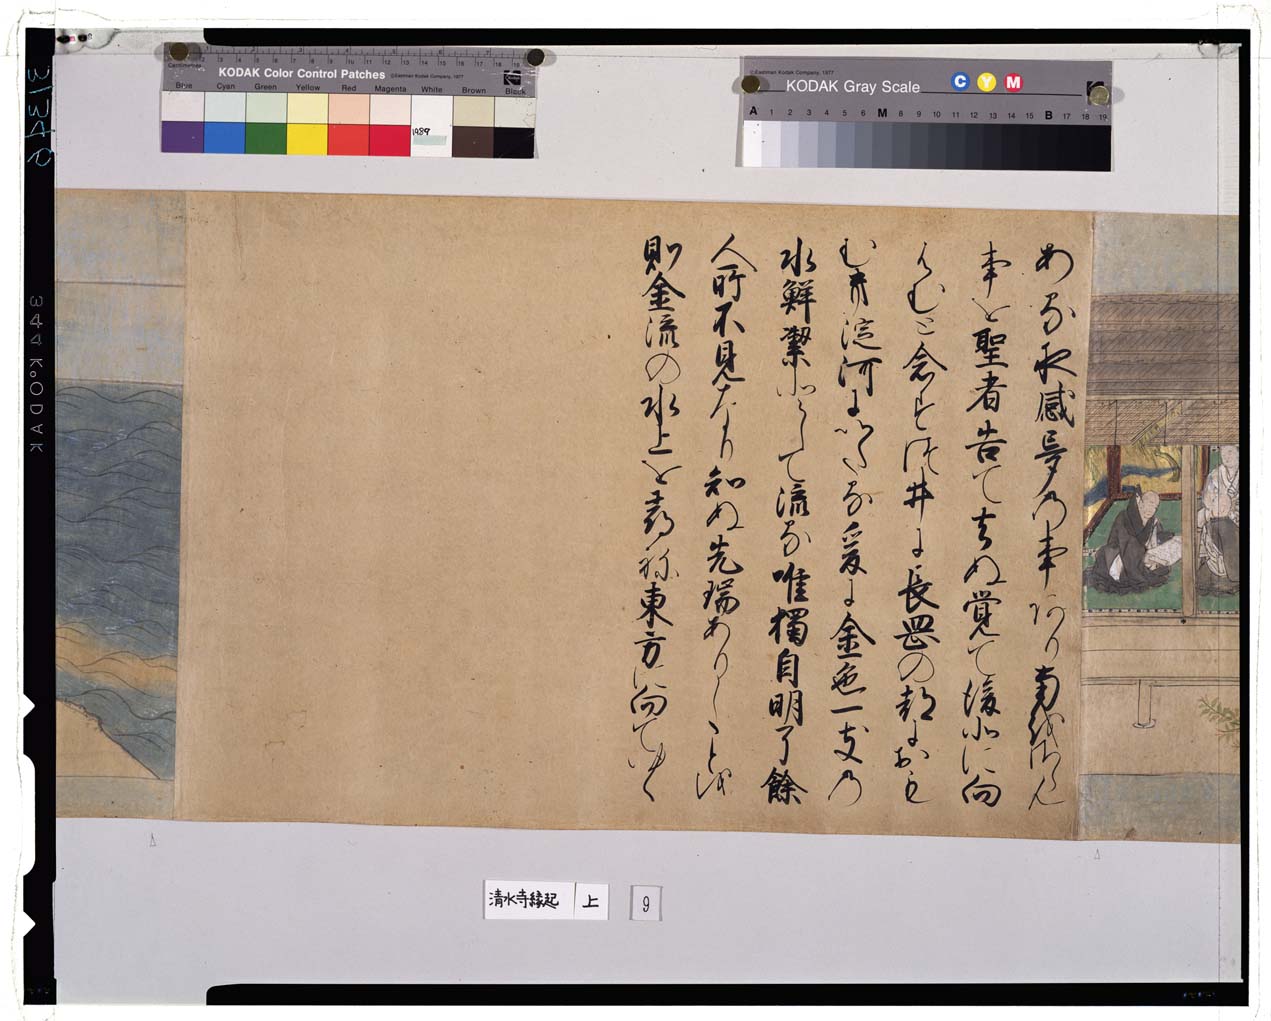 KODAK Color Control Patches
©Eastman Kodak Company, 1977
Blue Cyan Green Yellow Red Magenta White Brown Black
1989
©Eastman Kodak Company, 1977
KODAK Gray Scale
C Y M
A 1 2 3 4 5 6 M 8 9 10 11 12 13 14 15 B 17 18 19
344 KODAK
ある夜感夢の事あり南を
事を聖者告て去ぬ覚て後北に向
はむと念
む淀河に爰に金色一支の
水鮮潔にして流る唯獨自明了餘
人所不見なり知ぬ先瑞ありしことを
則金流の水上を尋ね東方に向てゆく
清水寺縁起 上
9